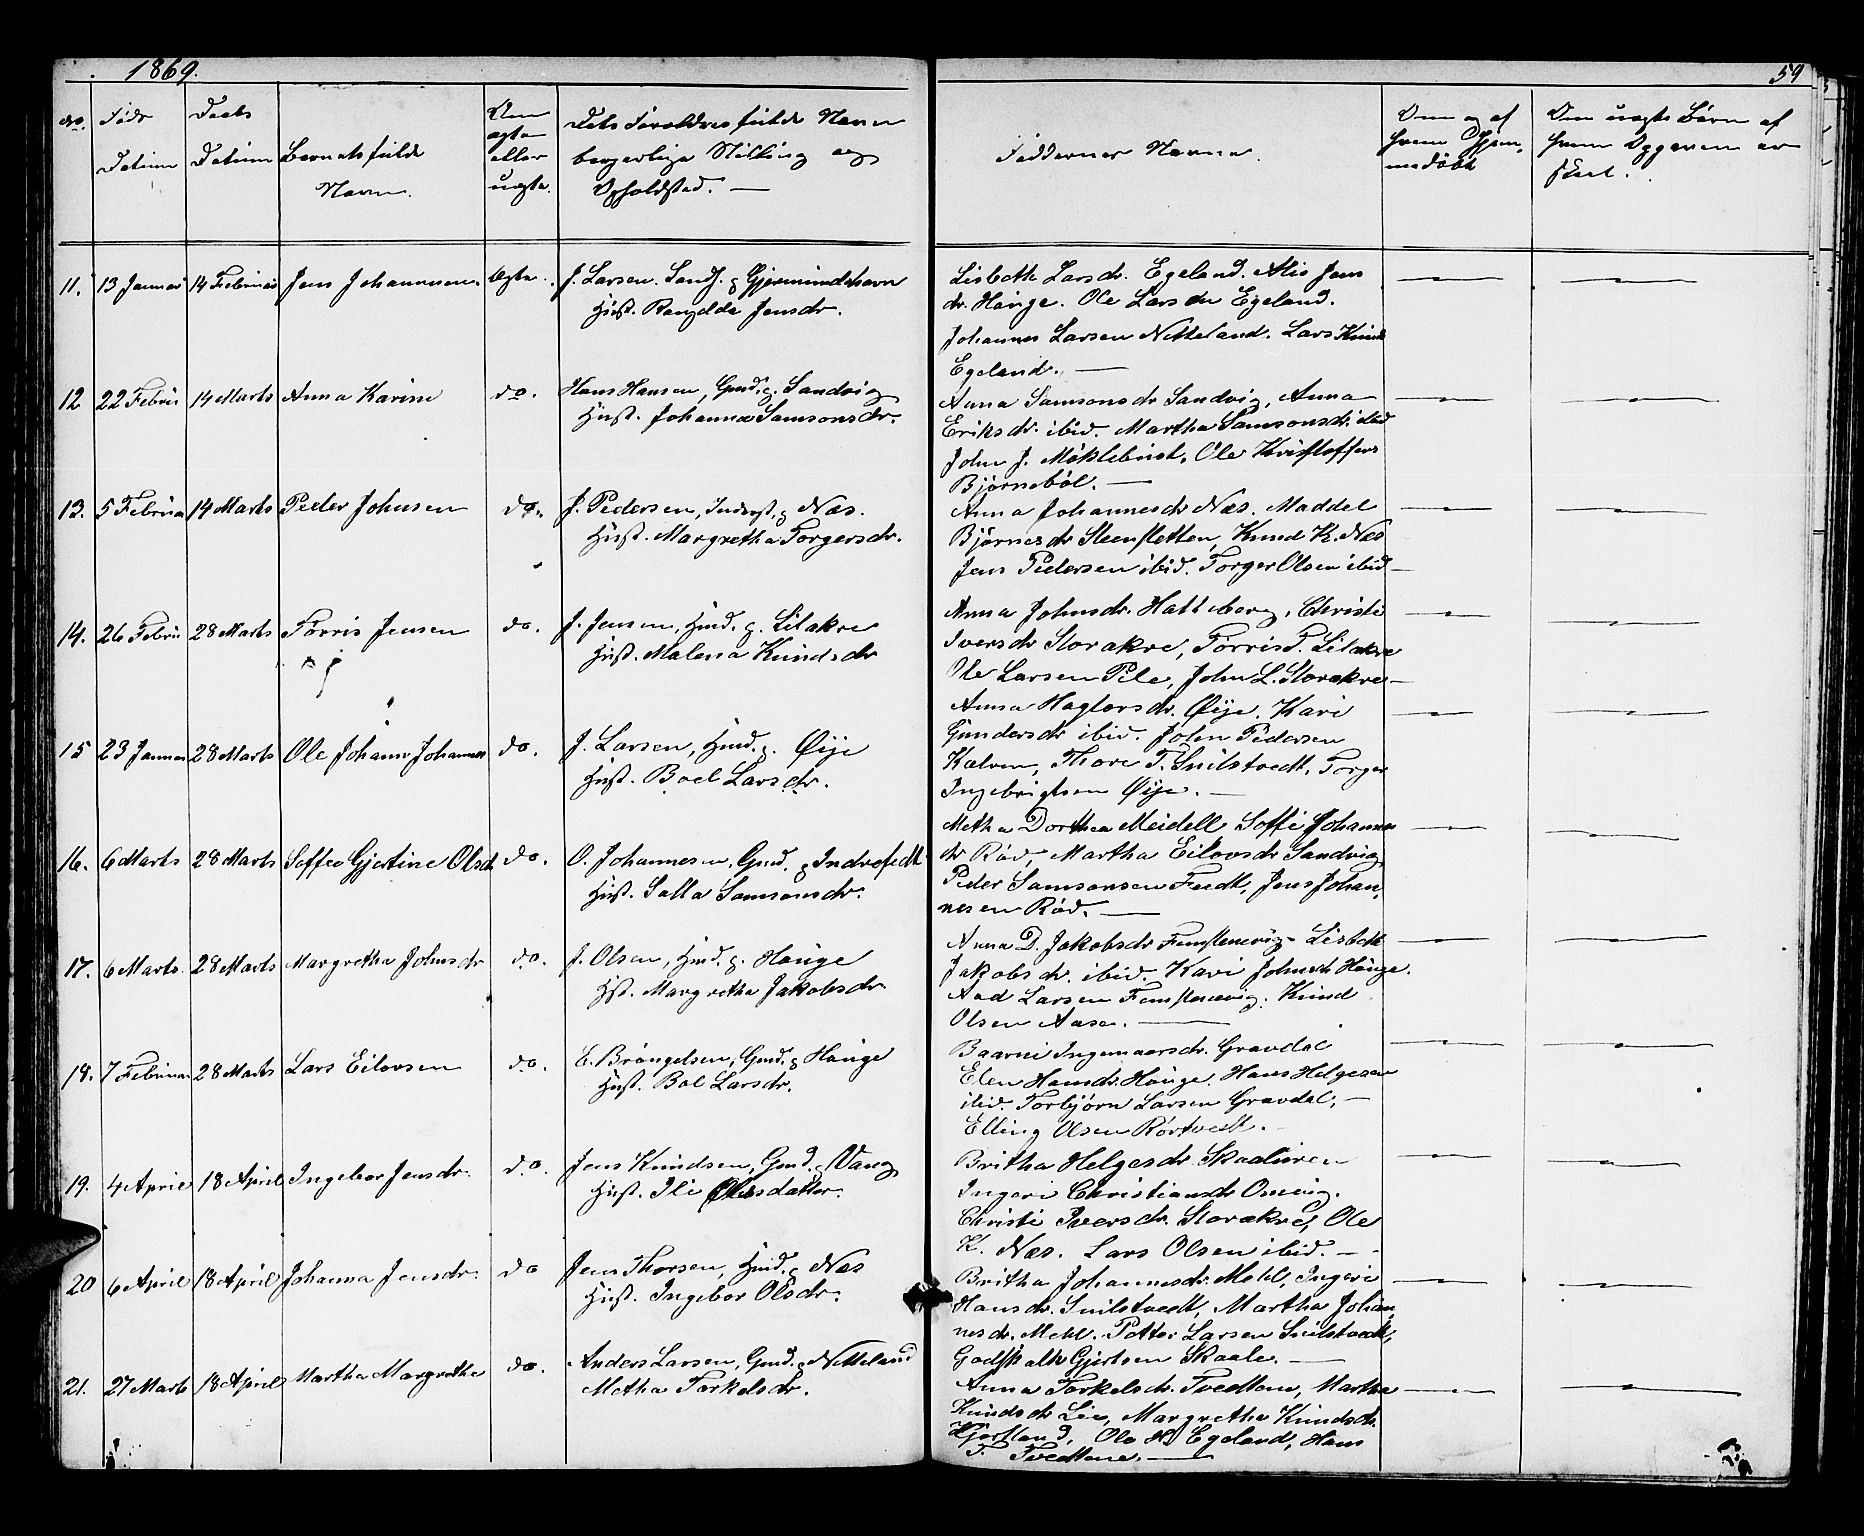 1869.
59
No.
Føds
Datum
Daabs
Datum
Barnets fulde
Navn.
Om
ægte
eller
uægte.
Dets Forældres fulde Navn
borgerlige Stilling og
Opholdsted. —
Faddernes Navne.
Om og af
hvem Hjem-
medøbt
Om uægte Børn af
hvem Opgaven er
skeet.
11. 13 Januar 14 Februar Jens Johannesen. Ægte. J. Larsen. Gjermundshavn
Hust. Jensdr.
Lisbeth Larsdr. Egeland. Jens
dr. Hauge. Ole Larsen Egeland.
Johannes Larsen Netteland. Lars Knud
Egeland. —
12 22 Febru 14 Marts Anna Karine do. Hans Hansen, Gmd. g. Sandvig
Hust. Johanna Samsonsdr.
Anna Samsonsdr Sandvig, Anna
Eriksdr. ibid. Martha Samsonsdr. ibid
John J. Møklebust, Ole Kristoffers
Bjørnebøl. —
13. 5 Februa 14 Marts Peder Johnsen do. J. Pedersen, Inderst, g Næs.
Hust. Margretha Torgersdr.
Anna Johannesdr Næs. Maddel
Bjørnesdr Steensletten, Knud K. Næs
Jens Pedersen ibid. Torger Olsen ibid —
14. 26 Febru 28 Marts Torris Jensen do. J. Jensen, Hmd. g. Lilakre
Hust. Malena Knudsdr
Anna Johnsdr. Hatteberg, Christi
Iversdr Storakre, Torris T. Lilakre
Ole Larsen Pile, John L. Storakre —
15 23 Januar 28 Marts Ole Johan Johannes do. J. Larsen, Hmd. g. Øije
Hust. Boel Larsdr.
Anna Hagtorsdr. Øije. Kari
Gundersdr ibid. John Pedersen
Kalven, Thore T. Snilstvedt, Torger
Ingebrigtsen Øije. —
16. 6 Marts 28 Marts Soffie Gjertine Olsdr do. O. Johannesen, Gmd. g Indrefedt
Hust. Salla Samsonsdr.
Metha Dorthea Meidell Soffi Johannes
dr Rød, Martha Eilovsdr Sandvig
Peder Samsonsen Feedt, Jens Johan,
nesen Rød. —
17. 6 Marts 28 Marts Margretha Johnsdr do. J. Olsen, Hmd. g. Hauge
Hst. Margretha Jakobsdr
Anna D. Jakobsdr Femstenevig. Lisbeth
Jakobsdr. ibid. Kari Johnsdr Hauge.
Aad Larsen Femstenevig. Knud
Olsen Aase. —
18. 7 Februar 28 Marts Lars Eilovsen do. E. Brøngelsen, Gmd. g Hauge
Hust. Bol Larsdr.
Ingemaarsdr. Gravdal
Elen Hansdr. Hauge. Hans Helgesen
ibid. Torbjørn Larsen Gravdal, —
Elling Olsen Rørtvedt.
19. 4 April 18 April Ingebor Jensdr. do. Jens Knudsen, Gmd. g Vang
Hust. Ili Olesdatter.
Britha Helgesdr Skaaluren
Ingeri Christiansdr Omvig.
Christi Iversdr. Storakre, Ole
K. Næs. Lars Olsen ibid. —
20 6 April 18 April Johanna Jensdr. do Jens Thorsen, Hmd. g Næs
Hust. Ingebor Olsdr.
Britha Johannesdr. Mehl, Ingeri
Hansdr. Snilstvedt, Martha Johan,
nesdr. Mehl. Petter Larsen Snilstvedt,
Godskalk Gjertsen Skaale. —
21. 27 Marts 18 April Martha Margretha do. Anders Larsen, Gmd. g Netteland
Metha Torkelsdr.
Anna Torkelsdr. Tvedtene, Martha
Knudsdr Lie, Margretha Knudsdr.
Hjortland, Ole H. Egeland, Hans
T. Tvedtene. —